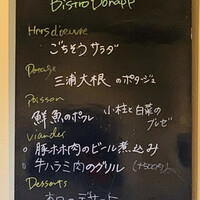 Bistro Donapp
Hors d'oeuvre
ごちそうサラダ
Potage
三浦大根 のポタージュ
Poisson
鮮魚のポワレ 小柱と白菜の
ブレゼ
Viandes
豚ホホ肉のビール煮込み
牛ハラミ肉のグリル (+500円)
Desserts